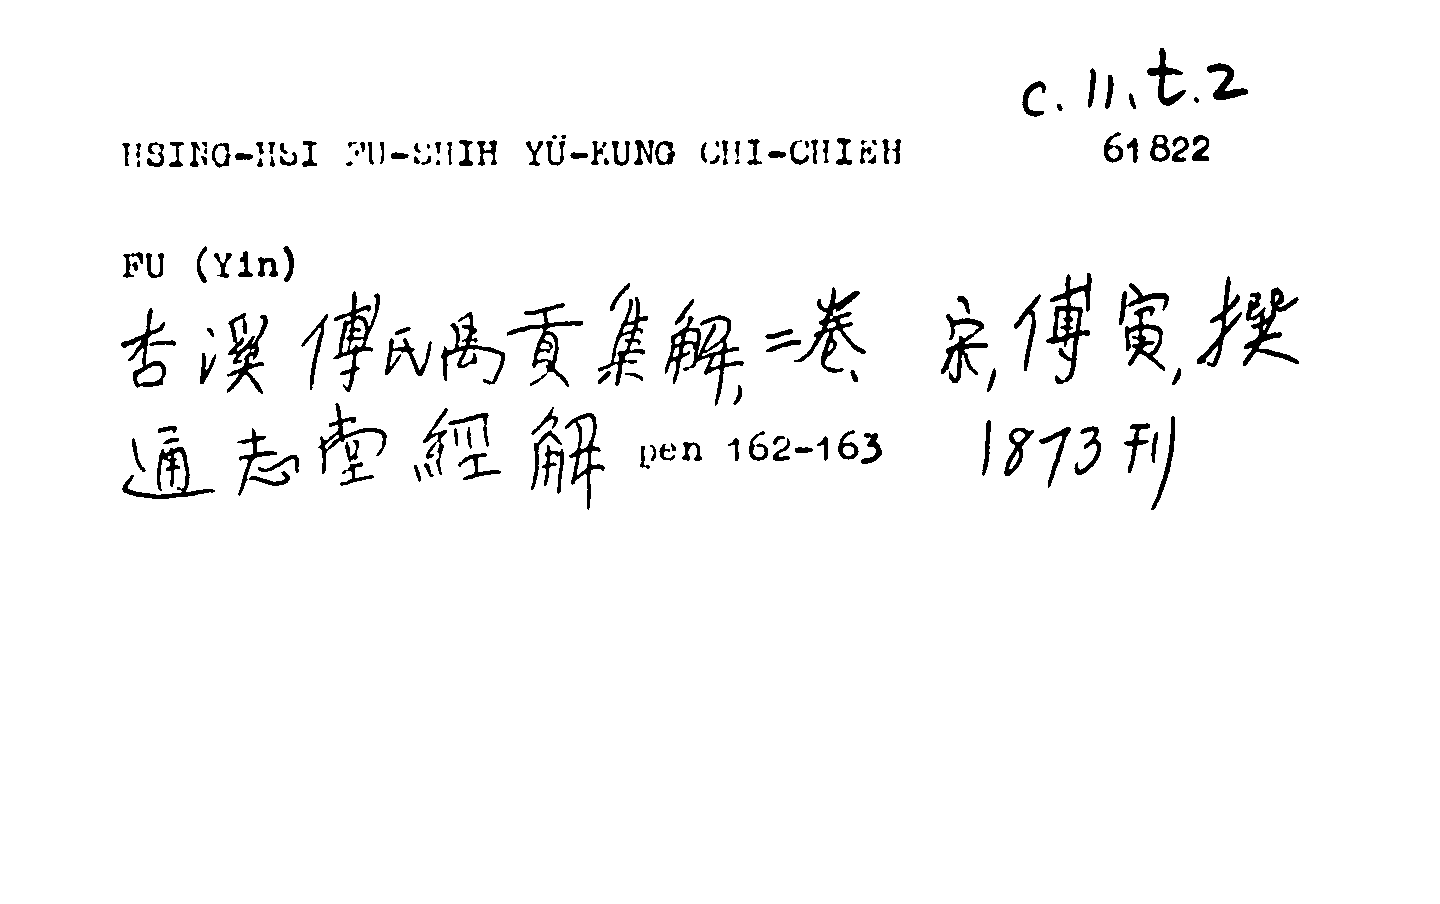 c. 11. t. 2
HSING-HSI FU-SHIH YÜ-KUNG CHI-CHIEH 61822
FU (Yin)
杏溪傅氏禹貢集解, 二卷、 宋, 傅寅, 撰
通志堂經解 pen 162-163 1873刊